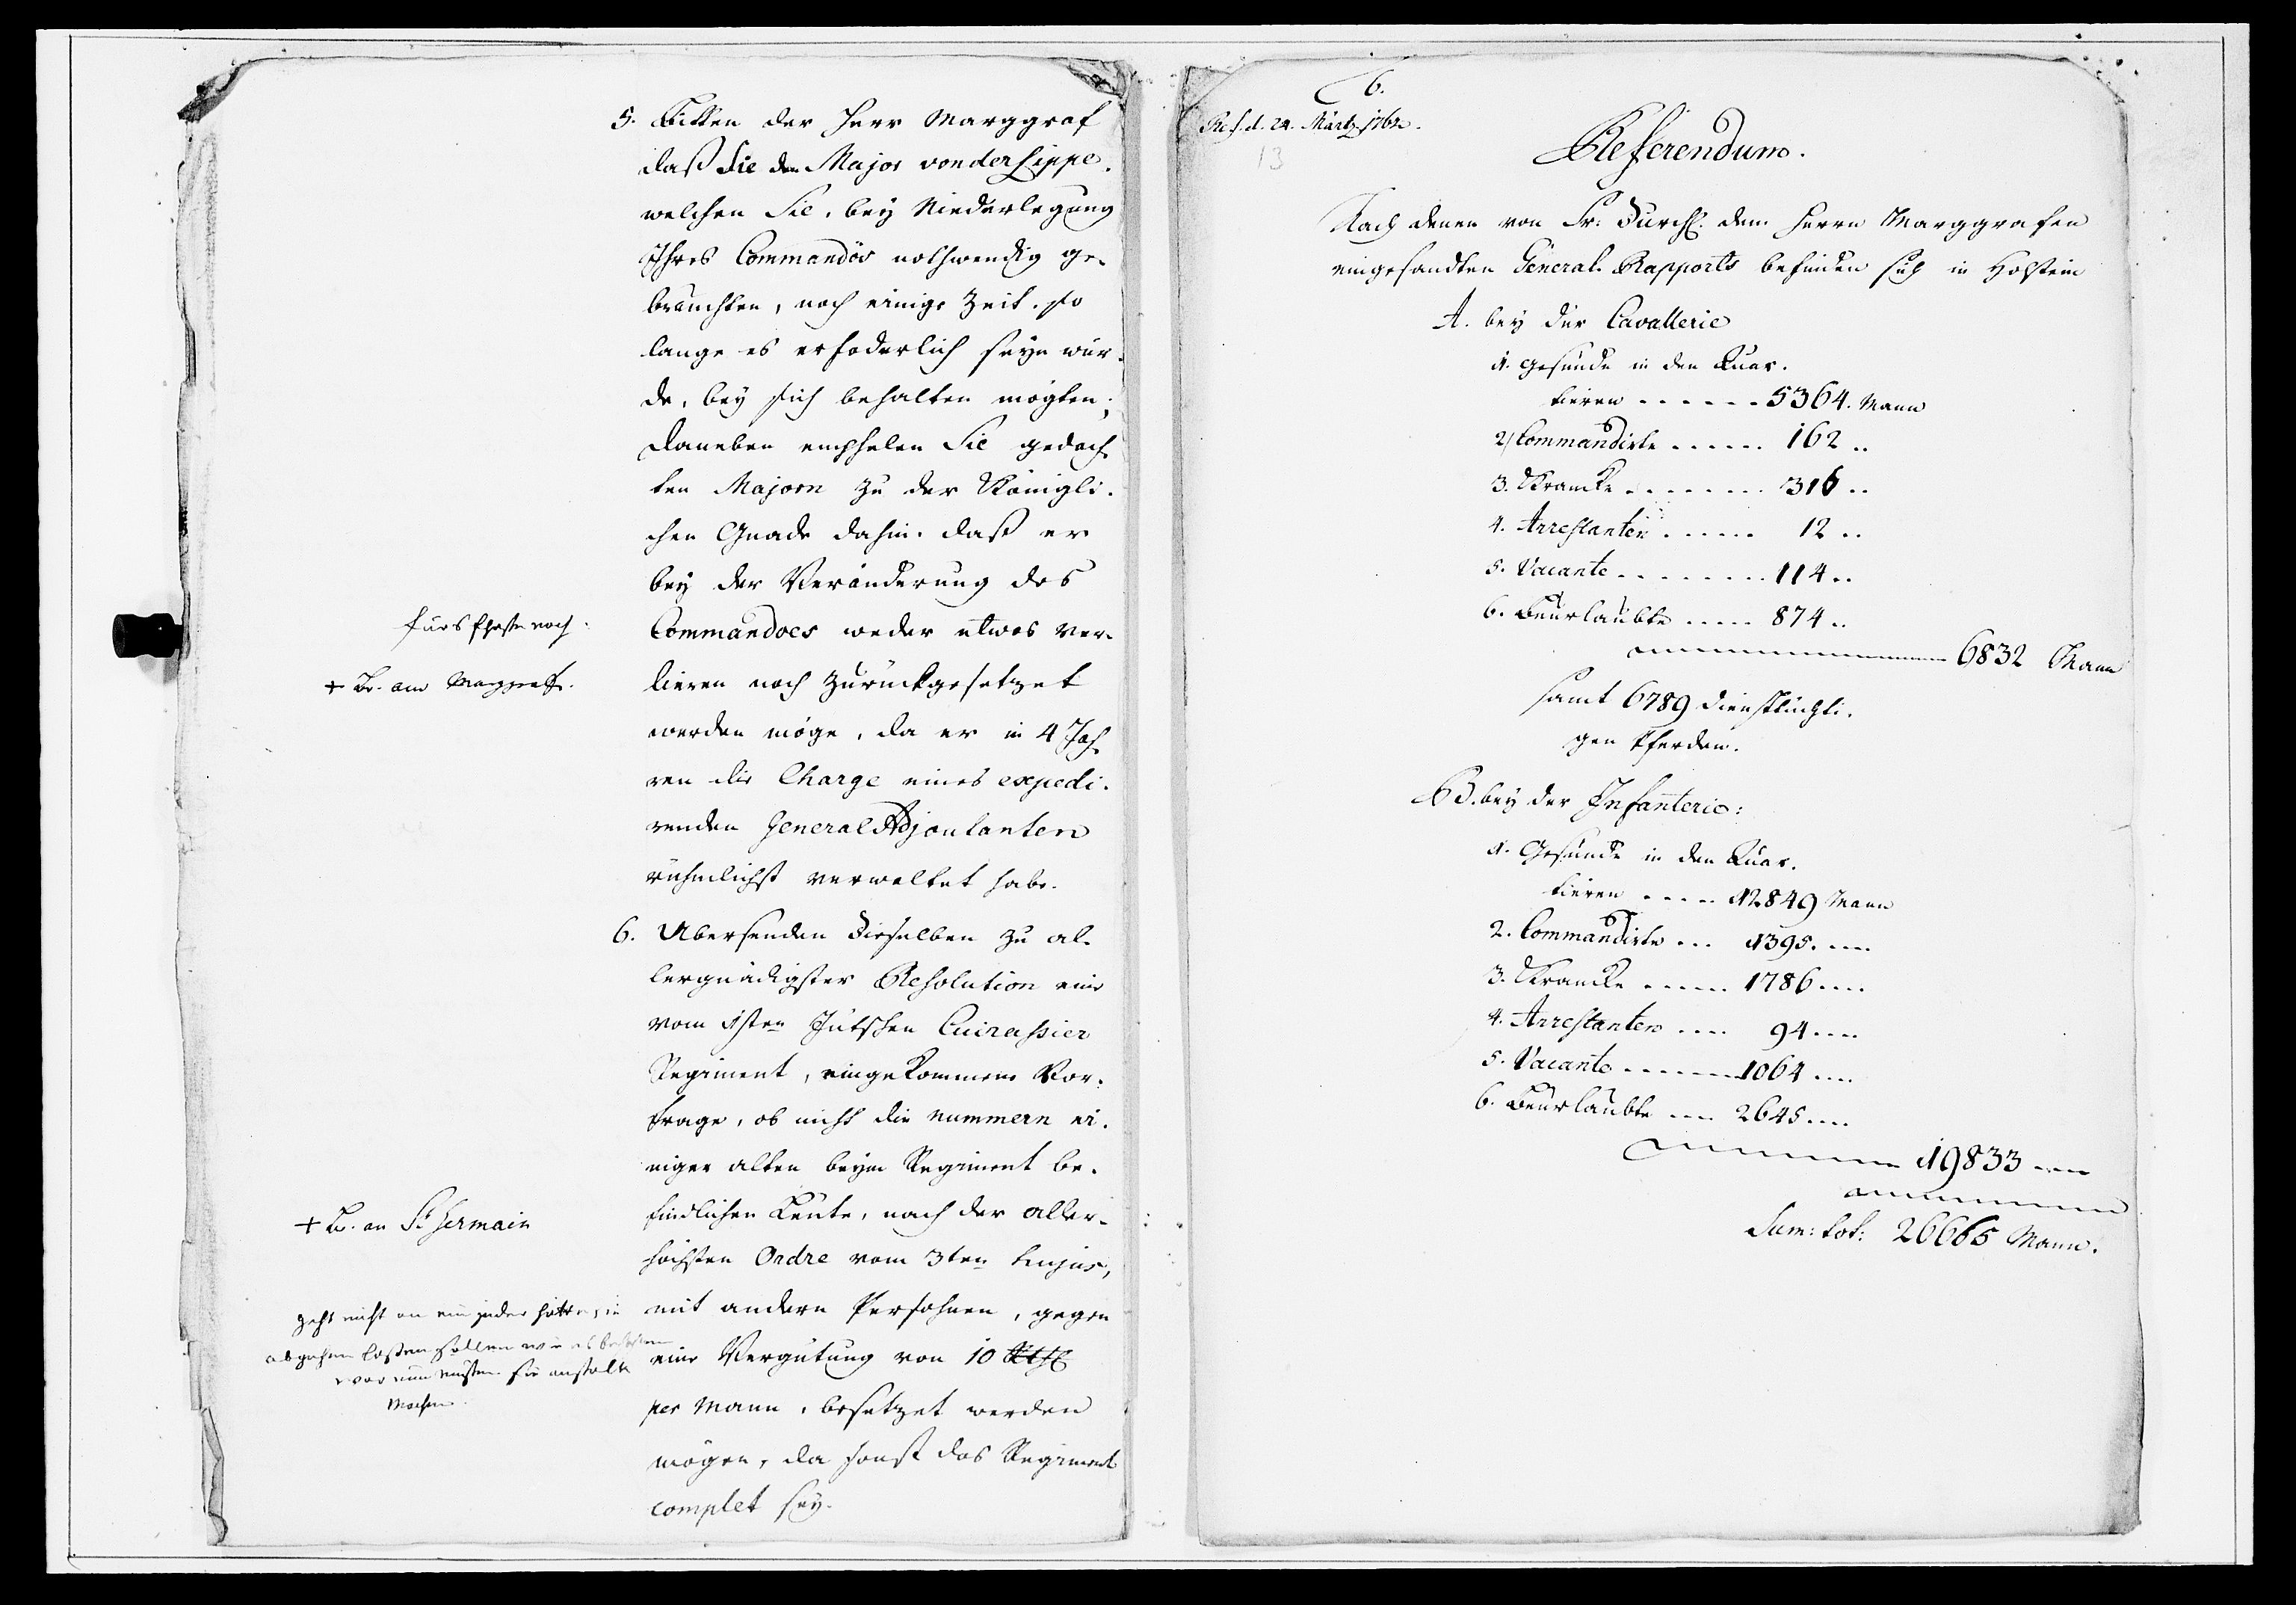 5. Bitten der Herr Marggraf
daß Sie den Major von der Lippe.
welchen Sie, bey Niederlegung
Ihres Commandos nothwendig ge-
brauchten, noch einige Zeit. so
lange es erfoderlich seyn wür-
de, bey sich behalten mögten;
Daneben empfehlen Sie gedach
ten Majorn zu der Königli-
chen Gnade dahin. daß er
bey der Veränderung des
fürs Erste noch.
Commandoes weder etwas ver-
+ Br. an Marggraf.
lieren noch zurückgesetzet
werden möge, da er in 4 Jah
ren die Charge eines expedi-
renden General Adjoutanten
rühmlichst verwaltet habe.
6. Ubersenden Dieselben zu al-
lergnädigster Resolution eine
vom 1sten Jütschen Cuirassier
Regiment, eingekommene Vor-
frage, ob nicht die nummern ei-
niger alten beym Regiment be-
findlichen Leute, nach der aller-
+ Br. an St Germain
höchsten Ordre vom 3ten hujus,
mit andern Persohnen, gegen
geht nicht an ein jeder hätte sie
abgehen lassen sollen wie es befohlen
war nun müssen sie anstalt
machen.
eine Vergütung von 10 Rthlr
per Mann, besetzet werden
mögen, da sonst das Regiment
complet sey.
6.
Ref. d. 24. Märtz 1762.
13
Referendum.
Nach denen von Sr. Durchl. dem Herrn Marggrafen
eingesandten General-Rapports befinden sich in Holstein
A. bey der Cavallerie
1. gesunde in den Quar-
tieren ------ 5364. Mann
2) Commandirte ...... 162 ..
3. Krancke ........ 316 ..
4. Arrestanten ...... 12 ..
5. Vacante ........ 114 ..
6. Beurlaubte ..... 874 ..
6832 Mann
samt 6789 diensttüchti-
gen Pferden.
B. bey der Infanterie:
1. Gesunde in den Quar-
tieren ..... 12849 Mann
2. Commandirte ... 1395. ....
3. Krancke ...... 1786 ....
4. Arrestanten .... 94 ....
5. Vacante ....... 1064 ....
6. Beurlaubte .... 2645 ....
19833 ....
Sum: tot: 26665 Mann.